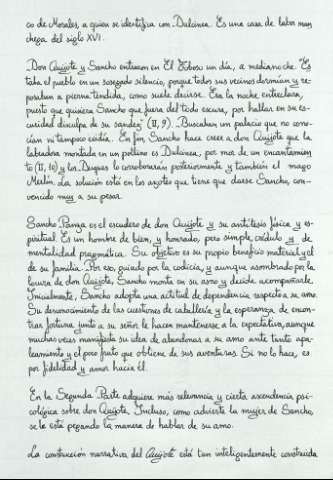 co de Morales, a quien se identifica con Dulcinea. Es una casa de labor man
chega del siglo XVI.
Don Quijote y Sancho entraron en El Toboso un día, a medianoche. "Es
taba el pueblo en un sosegado silencio, porque todos sus vecinos dormían y re-
posaban a pierna tendida, como suele decirse. Era la noche entreclara,
puesto que quisiera Sancho que fuera del todo escura, por hallar en su es-
curidad disculpa de su sandez" (II, 9). Buscaban un palacio que no cono-
cían ni tampoco existía. En fin, Sancho hace creer a don Quijote que la
labradora montada en un pollino es Dulcinea, por mor de un encantamien
to (II, 10) y los Duques lo corroborarán posteriormente y también el mago
Merlín. La solución está en los azotes que tiene que darse Sancho, con-
vencido muy a su pesar.
Sancho Panza es el escudero de don Quijote y su antítesis física y es-
piritual. Es un hombre de bien, y honrado, pero simple, crédulo y de
mentalidad pragmática. Su objetivo es su propio beneficio material y el
de su familia. Por eso, guiado por la codicia, y aunque asombrado por la
locura de don Quijote, Sancho monta en su asno y decide acompañarle.
Inicialmente, Sancho adopta una actitud de dependencia respecto a su amo.
Su desconocimiento de las cuestiones de caballería y la esperanza de encon-
trar fortuna junto a su señor le hacen mantenerse a la expectativa, aunque
muchas veces manifiesta su idea de abandonar a su amo ante tanto apa-
leamiento y el poco fruto que obtiene de sus aventuras. Si no lo hace, es
por fidelidad y amor hacia él.
En la Segunda Parte adquiere más relevancia y cierta ascendencia psi-
cológica sobre don Quijote. Incluso, como advierte la mujer de Sancho,
se le está pegando la manera de hablar de su amo.
La construcción narrativa del Quijote está tan inteligentemente construida